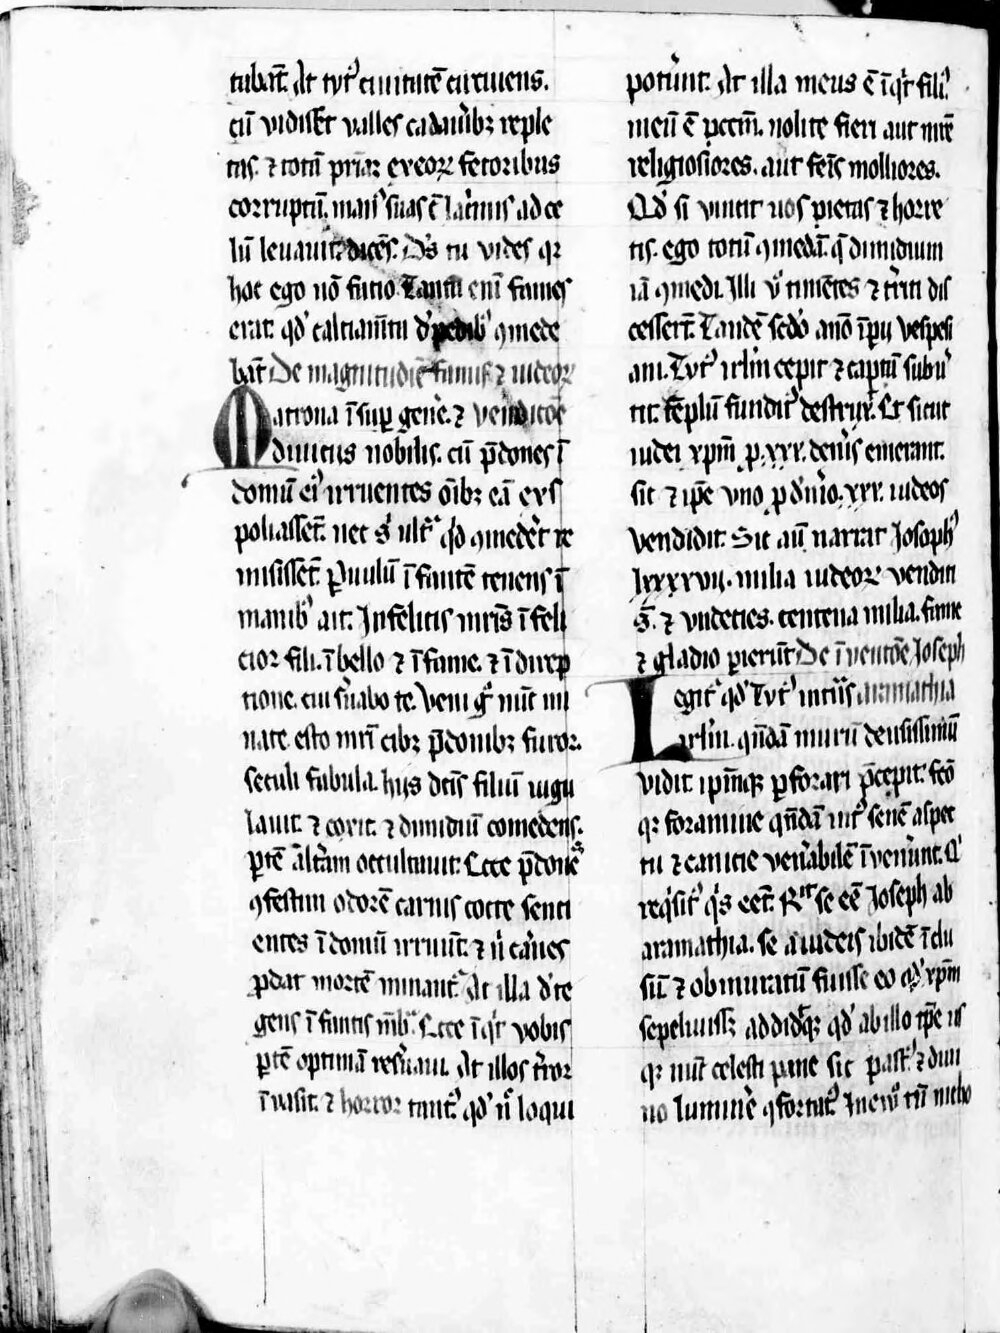 tubāt. At tyt᷒ ciuitatē circuiens.
cū vidisset valles cadauīb; reple
tas. ⁊ totā p̄riā eveoꝝ fetoribus
corruptū. man᷒ suas cū lac̄mis ad ce
lū leuauit dicēs. D̄s tu vides qꝛ
hoc ego nō facio. Tanta eni fames
erat. qd᷒ calciam̄ta d᷒ pedib᷒ ꝯmede
bāt. De magnitudiē famis ⁊ iudeoꝝ
Matrona īsup̄ geñe. ⁊
diuitiis nobilis. cū p̄dones ī
domū ei᷒ irruentes oīb; eā exs
poliassēt. nec s᷒ ult᷒ᵃ qd᷒ ꝯmederet re
misissēt. ꝑuulū īfantē tenens ī
manib᷒ ait. Infelicis mr̄is īfeli
cior fili. ībello ⁊ īfame. ⁊ ī direp
tione. cui s̄uabo te. Veni g° nūc mi
nate. esto mr̄i cib; p̄donib; furor.
seculi fabula. hijs dcīs filiū iugu
lauit. ⁊ coxit. ⁊ dimidiū comedens.
ꝑtē al̄tam occultauit. Ecce p̄dones
ꝯfestim odorē carnis cocte senti
entes ī domū irruūt. ⁊ n̄ carnes
ꝓdat mortē minant᷒. At illa d᷒te
gens īfantis mēb᷒ᵃ. Ecce īqͥt vobis
ꝑtē optimā res̄uaui. At illos t̄ror
īvasit. ⁊ horror tant᷒. qd᷒ n̄ loqui
potūnt. At illa meus ē īqͥt fili᷒.
meū ē pccm̄. nolite fieri aut mr̄e
religiosiores. aut feīs molliores.
Qd᷒ si vincit uos pietas ⁊ horre
tis. ego totū ꝯmedā. q̄ dimidium
iā ꝯmedi. Illi v᷒ timētes ⁊ t̄riti dis
cesserūt. Tandē sedo anō īpij vespesi
ani. Tyt᷒ irl̄m cepit ⁊ captā subu᷒
tit. tēplū fundit᷒ destruxit. Et sicut
iudei xp̄m. ꝑ. xxx. denīs emerant.
sic ⁊ ip̄e vno ꝑ d᷒nīo. xxx. iudeos
vendidit. Sic aū narrat Joseph᷒
lxxxxvij. milia iudeoꝝ venditi
s̄. ⁊ vndecies. centena milia. fame
⁊ gladio ꝑierūt. De īventōe Joseph
Legit᷒ qd᷒ Tyt᷒ int̄ns aramathia
irl̄m. qn̄dā murū densissimū
vidit. ip̄mqꝫ ꝑforari p̄cepit. fcō
qꝫ foramine qn̄dā int᷒ senē aspec
tu ⁊ canicie ven̄abilē īvenūnt. Qͥ
reqͥsit᷒ qͥs eēt. R̄it se eē Joseph ab
aramathia. se a iudeis ibidē īclu
sū ⁊ obmuratū fuisse eo qd᷒ xp̄m
sepeliuiss; addidqꝫ qd᷒ ab illo tp̄e us
qꝫ nūc celesti pane sic past᷒ ⁊ diui
no lumine ꝯfortat᷒. Inevo tn̄ nicho